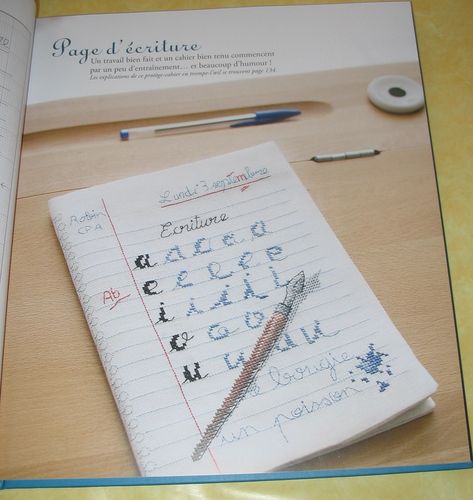 Page d'écriture
Un travail bien fait et un cahier bien tenu commencent
par un peu d'entraînement... et beaucoup d'humour !
Les explications de ce protège-cahier en trompe-l'œil se trouvent page 134.
Lundi 3 septembre
Robin
CPA
Ecriture
a a a a a
Ab
e e e e e
i i i i i
o o o
u u u u
bougie
un poisson